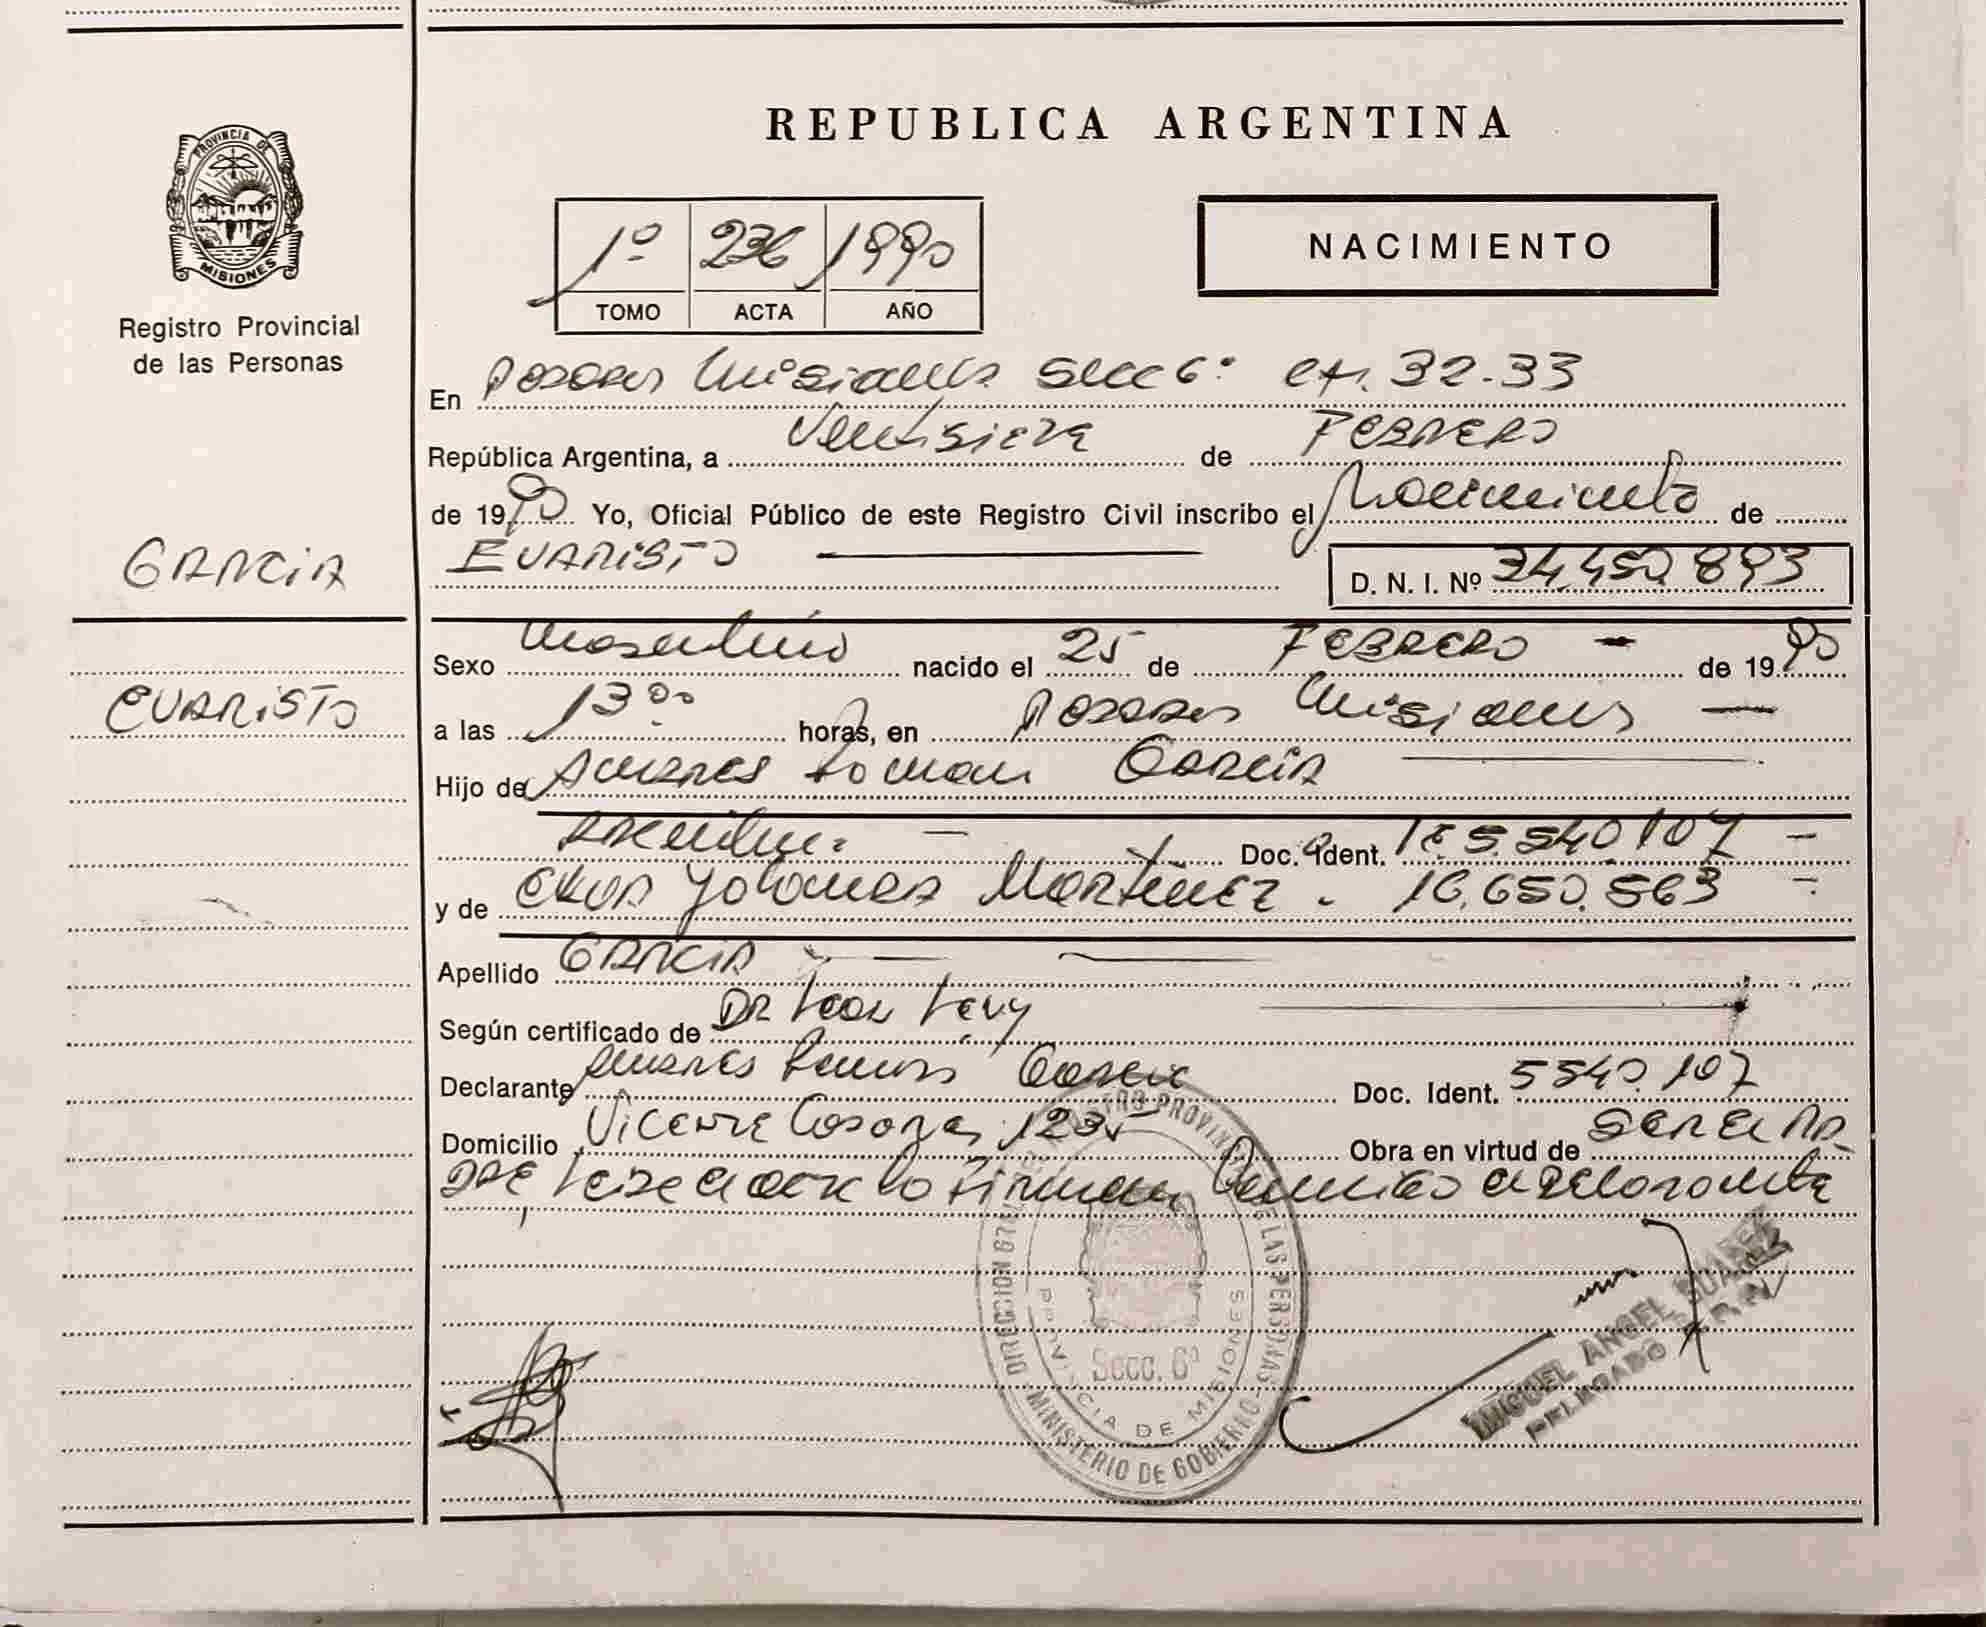 PROVINCIA DE
MISIONES
Registro Provincial
de las Personas
GARCIA
EVARISTO
REPUBLICA ARGENTINA
1º 236 1990
TOMO ACTA AÑO
NACIMIENTO
En Posadas Misiones Secc 6º 32-33
República Argentina, a Ventisiete de FEBRERO
de 1990 Yo, Oficial Público de este Registro Civil inscribo el Nacimiento de
EVARISTO
D. N. I. Nº 34.450.893
Sexo Masculino nacido el 25 de FEBRERO - de 1990
a las 13 00 horas, en Posadas Misiones
Hijo de Ramon Garcia
Argentino. Doc. Ident. 5.540.107
y de Yolanda Martinez. 16.650.563
Apellido GARCIA
Según certificado de DR Leon Levy
Declarante Ramon Garcia Doc. Ident. 5540.107
Domicilio Vicente Casares 1235 Obra en virtud de SER EL PA
DRE, Leida el acta la Firman Conmigo el declarante
DIRECCION GRAL. DEL REGISTRO PROVINCIAL DE LAS PERSONAS
MINISTERIO DE GOBIERNO
PROVINCIA DE MISIONES
Secc. 6ª
MIGUEL ANGEL SUAREZ
DELEGADO